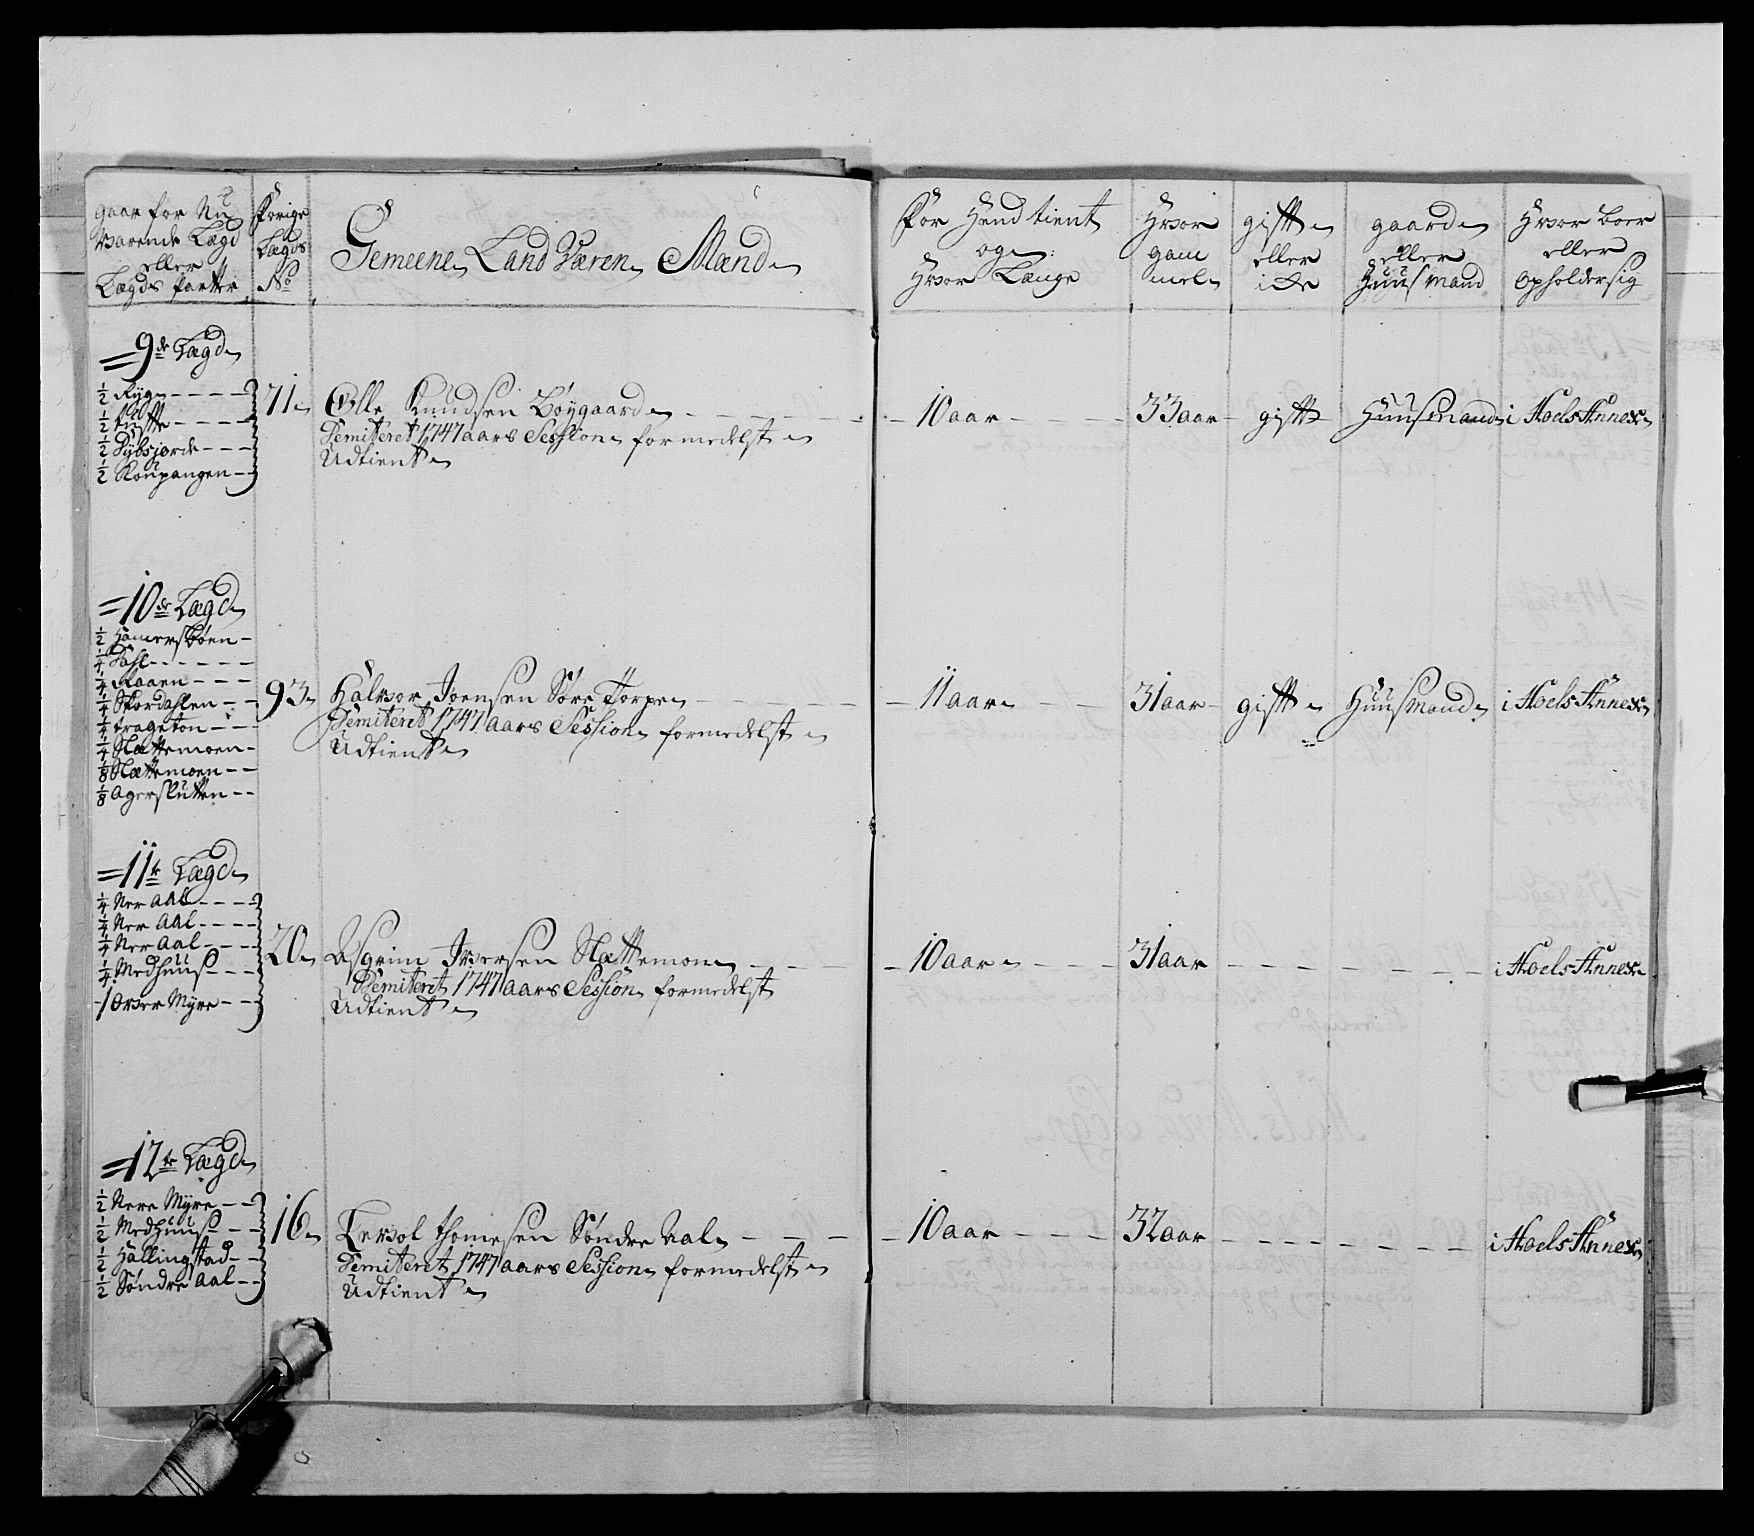 gaar for Nu
Værende Lægd
eller
Lægds Parter
Forige
Lægds
No
Gemeene Land Væren Mænd
For Hend tient
og
Hvor Længe
Hvor
gam
mel
gifft
eller
icke
gaard
eller
Huusmand
Hvor boer
eller
opholder sig
9de Lægd
1/2 Ryg
1/2 tufte
1/2 Dybsjorde
1/2 Koupangen
71
Olle Knudsen Bøygaard
Demiteret 1747 aars Session formedelst
Udtient
10 aar
33 aar
gifft
Huusmand
i Hoels Annex
10de Lægd
1/2 Hamersbøen
1/4 Dahl
1/4 Raaen
1/4 Skordahlen
1/4 trageton
1/4 Slættemoen
1/8 Slættemoen
1/8 Agerslutten
93
Halvor Joensen Søre Torpe
Demiteret 1747 aars Session formedelst
Udtient
11 aar
31 aar
gifft
Huusmand
i Hoels Annex
11te Lægd
1/4 Ner Aal
1/4 Ner Aal
1/4 Ner Aal
1/4 Medhuus
1 Over Myre
20
Asgrim Iversen Slættemoen
Demiteret 1747 aars Session formedelst
Udtient
10 aar
31 aar
i Hoels Annex
12te Lægd
1/2 Nere Myre
1/2 Medhuus
1/2 Hallingstad
1/2 Søndre Aal
16
Tersol thomesen Søndre Aal
Demiteret 1747 aars Session formedelst
Udtient
10 aar
32 aar
i Hoels Annex